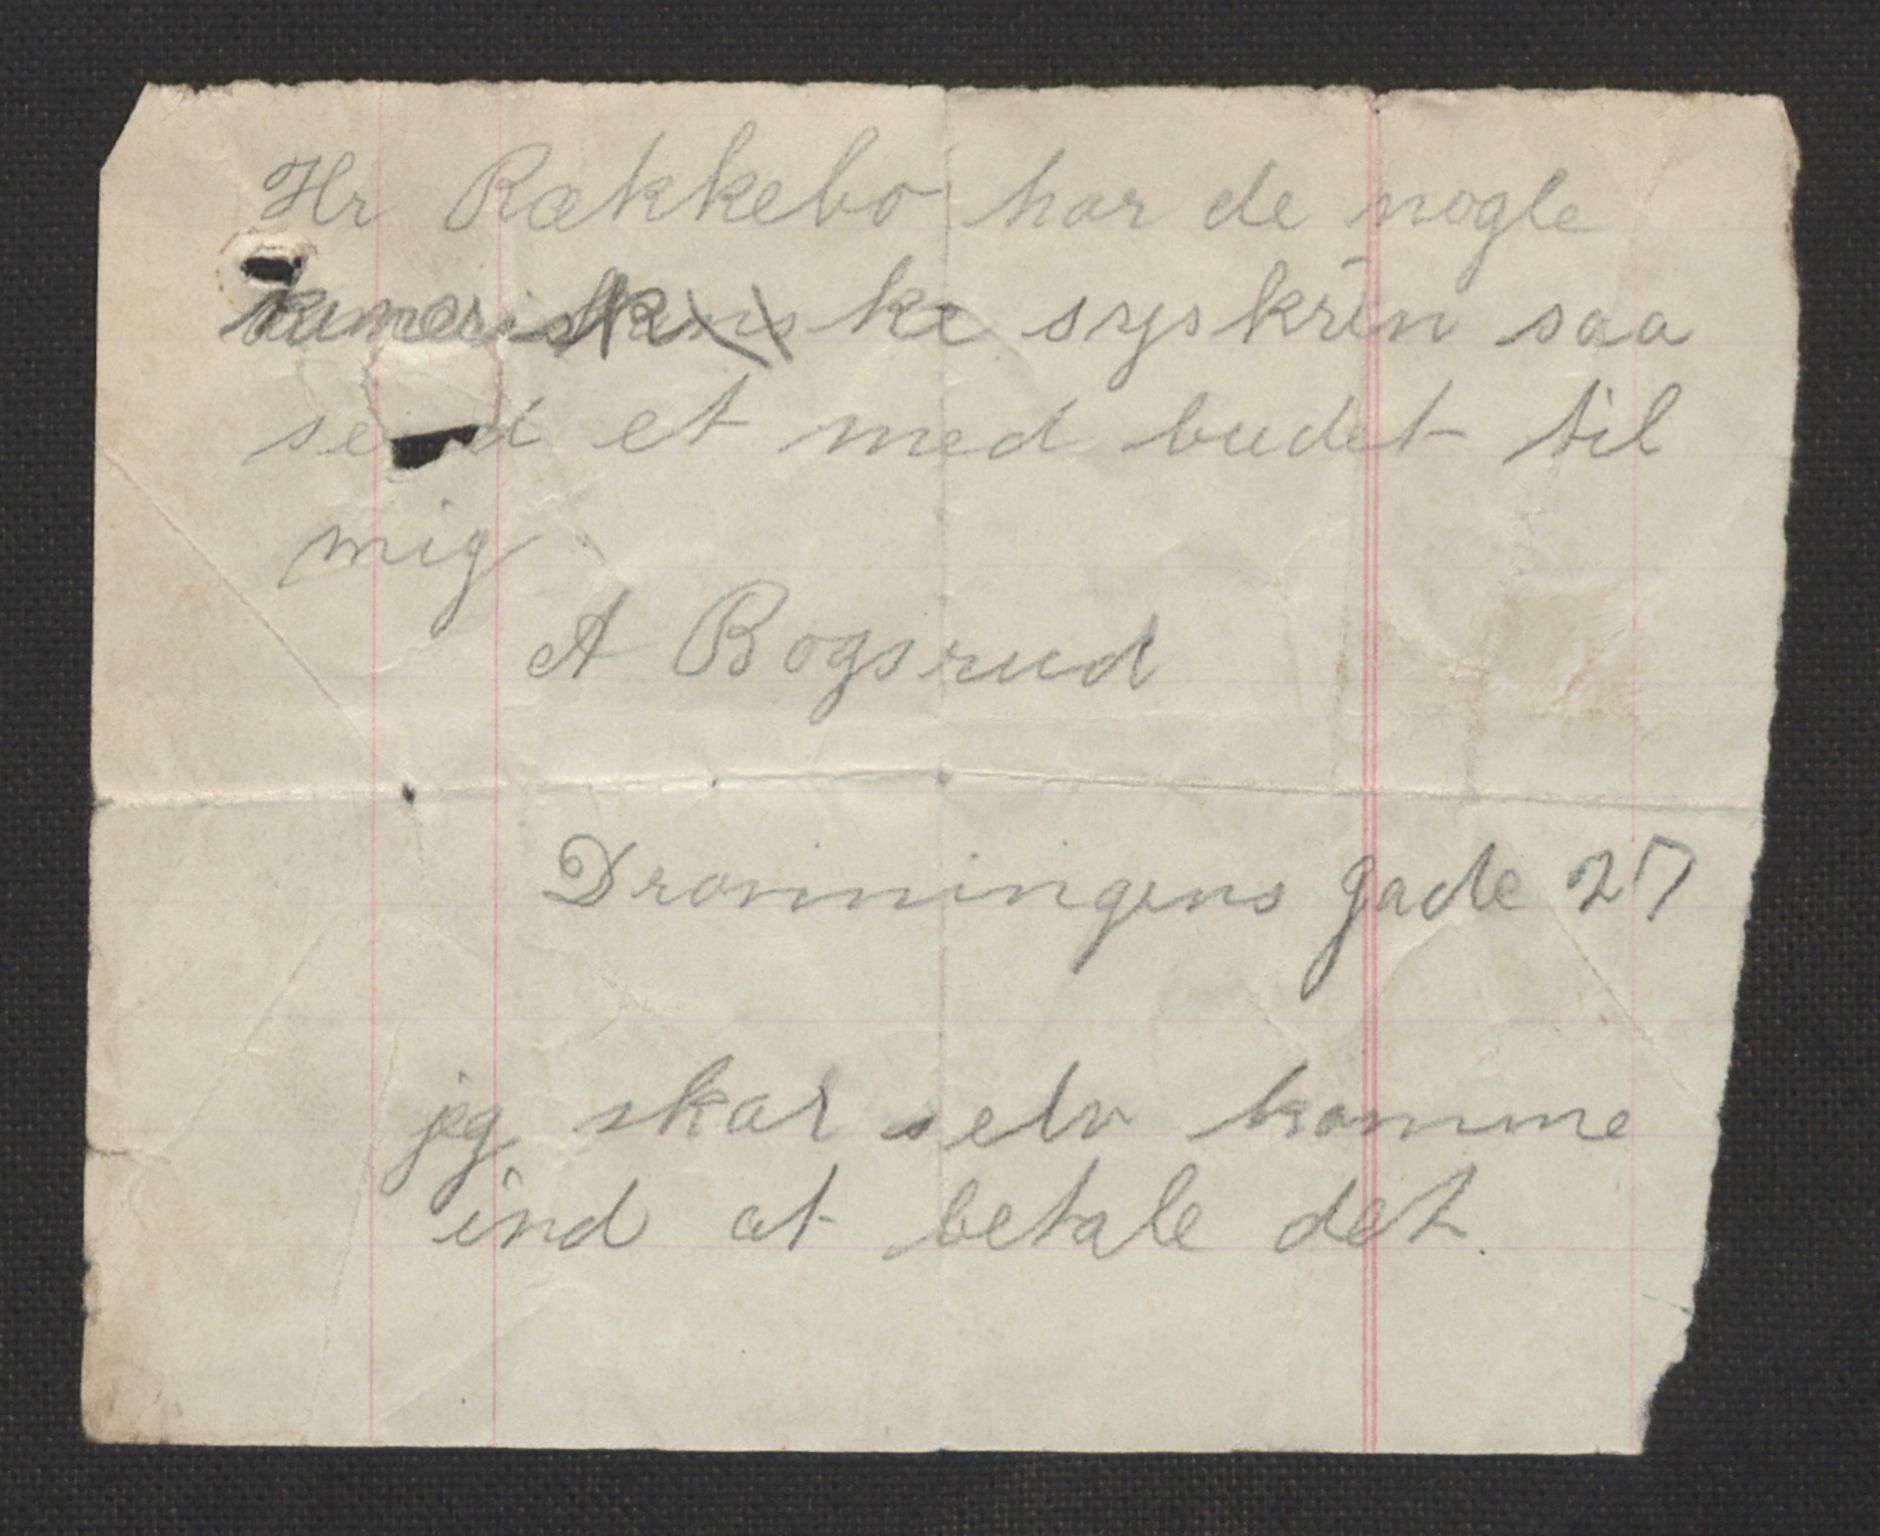 Hr Rækkebo har de nogle
ke syskrin saa
send et med budet til
mig
A Bogsrud
Dronningens gade 27
jeg skal selv komme
ind at betale det.